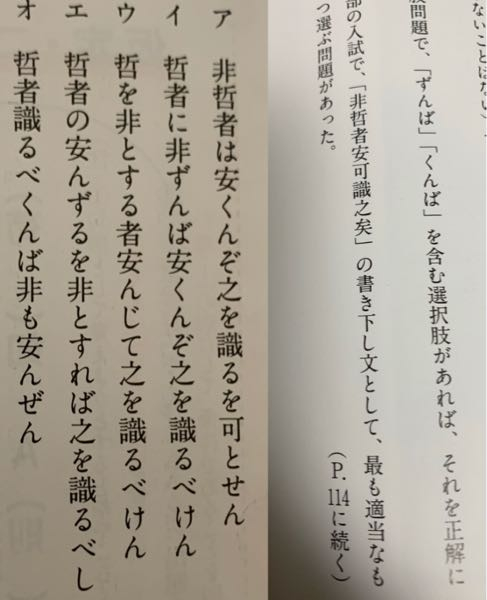 ないことはない）.
問題で、「ずんば」「くんば」を含む選択肢があれば、それを正解に
部の入試で、「非哲者安可識之矣」の書き下し文として、最も適当なも
つ選ぶ問題があった。
（P.114に続く）
ア　非哲者は安くんぞ之を識るを可とせん
イ　哲者に非ずんば安くんぞ之を識るべけん
ウ　哲を非とする者安んじて之を識るべけん
エ　哲者の安んずるを非とすれば之を識るべし
オ　哲者識るべくんば非も安んぜん